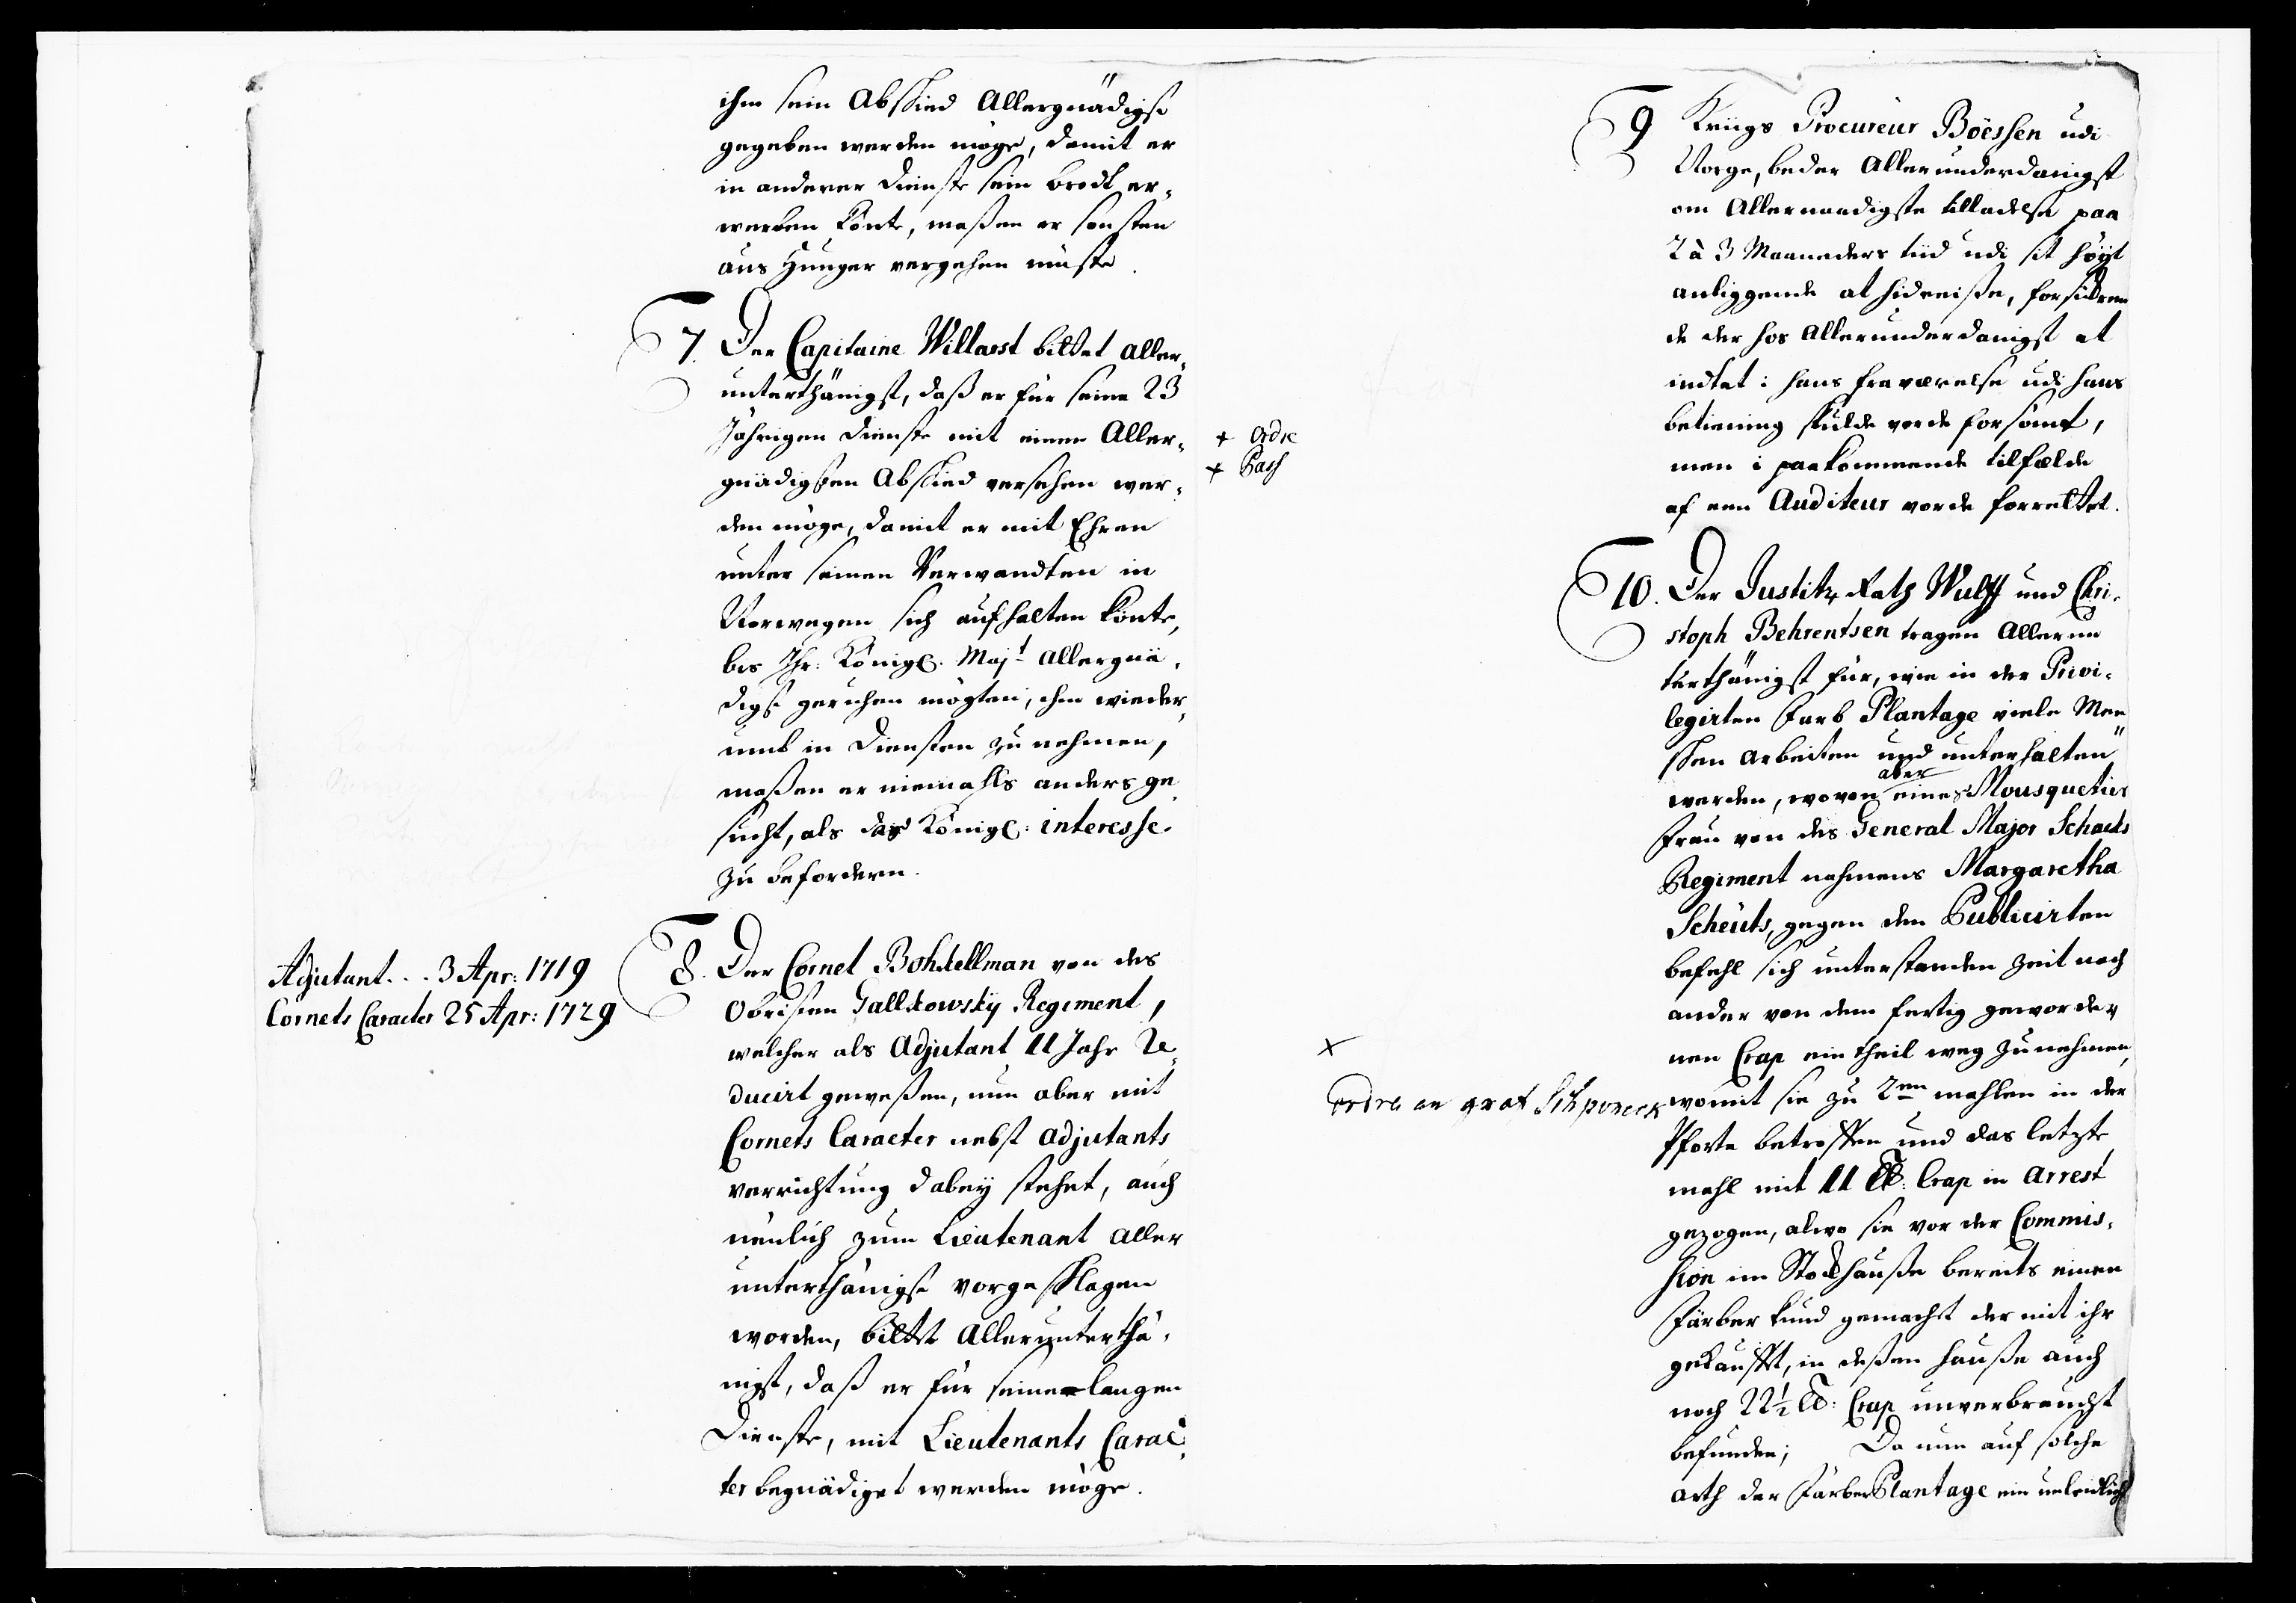 ihm sein Abschied Allergnädigst
gegeben werden möge, damit er
in anderer Dienste sein brodt er,
werben könte, maßen er sonsten
aus Hunger vergehen müste.
7. Der Capitaine Willarst bittet aller,
unterthänigst, daß er für seine 23
Jährigen Dienste mit einem Aller,
gnädigsten Abschied versehen wer,
den möge, damit er mit Ehren
unter seinen Verwandten in
Norwegen sich aufhalten könte,
bis Ihr: Königl. Majt allergnä,
digst geruhen mögten, ihm wieder,
umb in Diensten zu nehmen,
maßen er niemahls anders ge
sucht, als das Königl: interesse
zu befordern.
+ Ordre
+ Pass
Adjutant... 3 Apr: 1719
Cornets Caracter 25 Apr: 1729
8. Der Cornet Bohstellman von des
Obristen Gallskowsky Regiment,
welcher als Adjutant 11 Jahr Re,
ducirt geweßen, nun aber mit
Cornets Caracter nebst adjutants
verrichtung dabey stehet, auch
neulich zum Lieutenant aller
unterthänigst vorgeschlagen
worden, bittet Allerunterthä,
nigst, daß er für seine langen
Dienste, mit Lieutenants Carac,
ter begnädiget werden möge.
9 Kriigs Procureur Böessen udi
Norge, beder Allerunderdanigst
om Allernaadigste tilladelse paa
2 à 3 Maaneders tiid udi sit höyst
anliggende at hidreise, forsickren
de der hos Allerunderdanigst at
indtet i hans fraværelse udi hans
betiening skulde vorde forsömt,
men i paakommende tilfælde
af een Auditeur vorde forrettet.
10. Der Justitz Rath Wulff und Chri,
stoph Behrentsen tragen Allerun
terthänigst für, wie in der Privi,
legirten Farb Plantage viele Men
schen arbeiten und unterhalten
werden, wovon aber eines Mousquetirs
Frau von des General Major Schacks
Regiment nahmens Margaretha
Scheuts, gegen den Publicirten
befehl sich unterstanden Zeit nach
ander von dem fertig geworde,
nen Crap ein theil weg zu nehmen,
womit sie zu 2en mahlen in der
Pforte betroffen und das letzte
mahl mit 11 ℔: Crap in Arrest
gezogen, alwo sie vor der Commis,
sion im Stockhauße bereits einen
Färber kund gemacht der mit ihr
gekaufft, in deßen hauße auch
noch 22½ ℔: Crap unverbraucht
befunden; Da nun auf solche
arth der Färber Plantage ein unleidlich
+
Ordre an graf